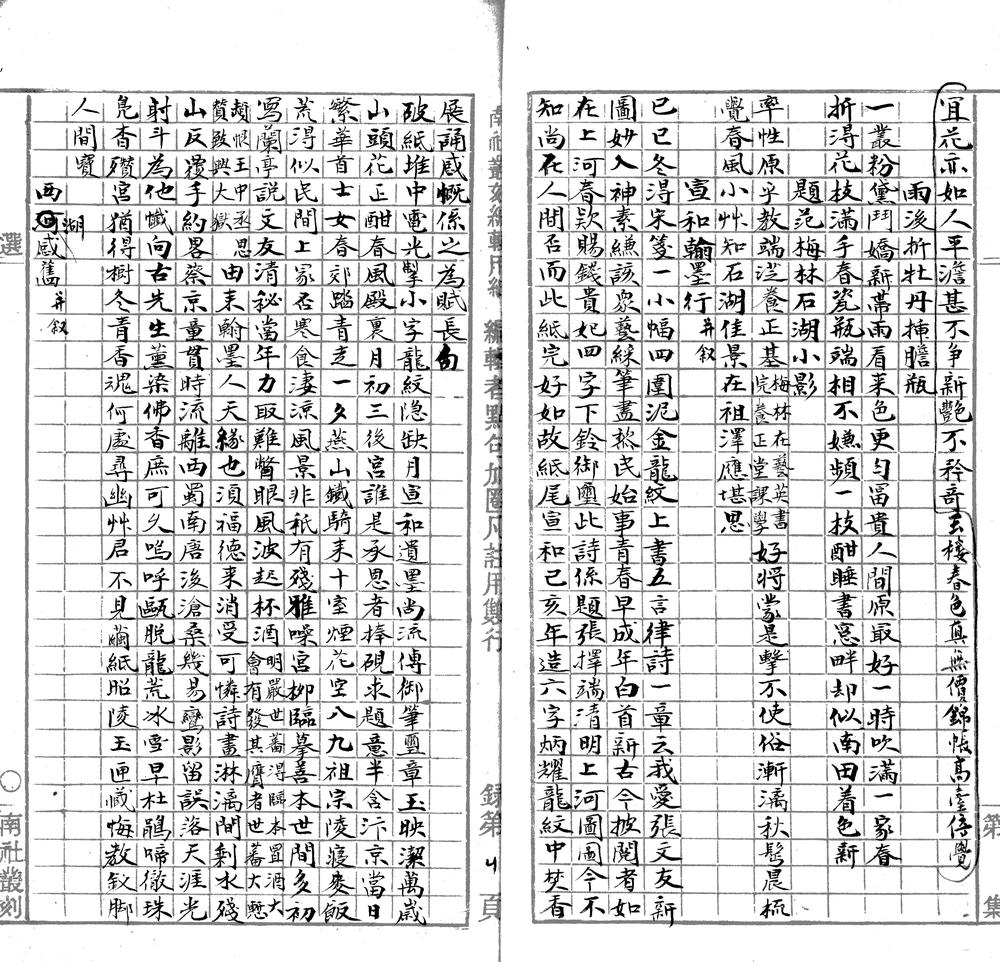 宜花亦如人平澹甚不争新艷不矜奇玄樓春色真無價錦帳高臺倍覺
雨後折牡丹揷膽瓶
一叢粉黛鬥嬌新帶雨看来色更勻富貴人間原最好一時吹滿一家春
折得花枝滿手春瓷瓶端相不嫌頻一枝酣睡書窓畔却似南田着色新
題范梅林石湖小影
率性原乎教端涖養正基梅林在藝英書院養正堂課學好將蒙是擊不使俗漸漓秋髩晨梳
覺春風小艸知石湖佳景在祖澤應堪思
宣和翰墨行并叙
己巳冬淂宋箋一小幅四圍泥金龍紋上書五言律詩一章云我愛張文友新
圖妙入神素縑該衆藝綵筆盡熬民始事青春早成年白首新古今披閱者如
在上河春欵賜錢貴妃四字下鈐御璽此詩係題張擇端清明上河圖圖今不
知尚在人間否而此紙完好如故紙尾宣和己亥年造六字炳耀龍紋中焚香
展誦感慨係之為賦長句
破紙堆中電光掣小字龍紋隐缺月宣和遺墨尚流傳御筆璽章玉映潔萬歲
山頭花正酣春風殿裏月初三後宮誰是承恩者捧硯求題意半含汴京當日
繁華首士女春郊踏青走一夕燕山鐵騎来十室煙花空八九祖宗陵寢麥飯
荒淂似民間上冢否寒食淒涼風景非秖有殘雅噪宮柳臨摹善本世間多初
寫蘭亭說文友清秘當年力取難瞥眼風波起杯酒明嚴世蕃得贋本置酒大會有發其贋者世蕃大慙
頗恨王中丞思質致興大獄由来翰墨人天緣也須福德来消受可憐詩畫淋漓間剩水殘
山反覆手約畧蔡京童貫時流離西蜀南唐後滄桑幾易鸞影留誤洛天涯光
射斗為他懺向古先生薰染佛香庶可久嗚呼甌脱龍荒冰雪早杜鵑啼徹珠
鳧杳殯宮猶得樹冬青香魂何處尋幽艸君不見繭紙昭陵玉匣悔教釵脚
人間寶
西湖感舊并叙
南社叢刻編輯用紙 編輯者點句加圈凡註用雙行 錄第 4 頁
選 〇南社叢刻
二 第 集